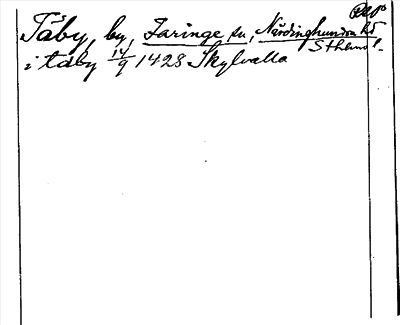 Täby, by, Faringe sn, Närdinghundra hd
Sthlms l.
i täby 14/9 1428 Skylvalla